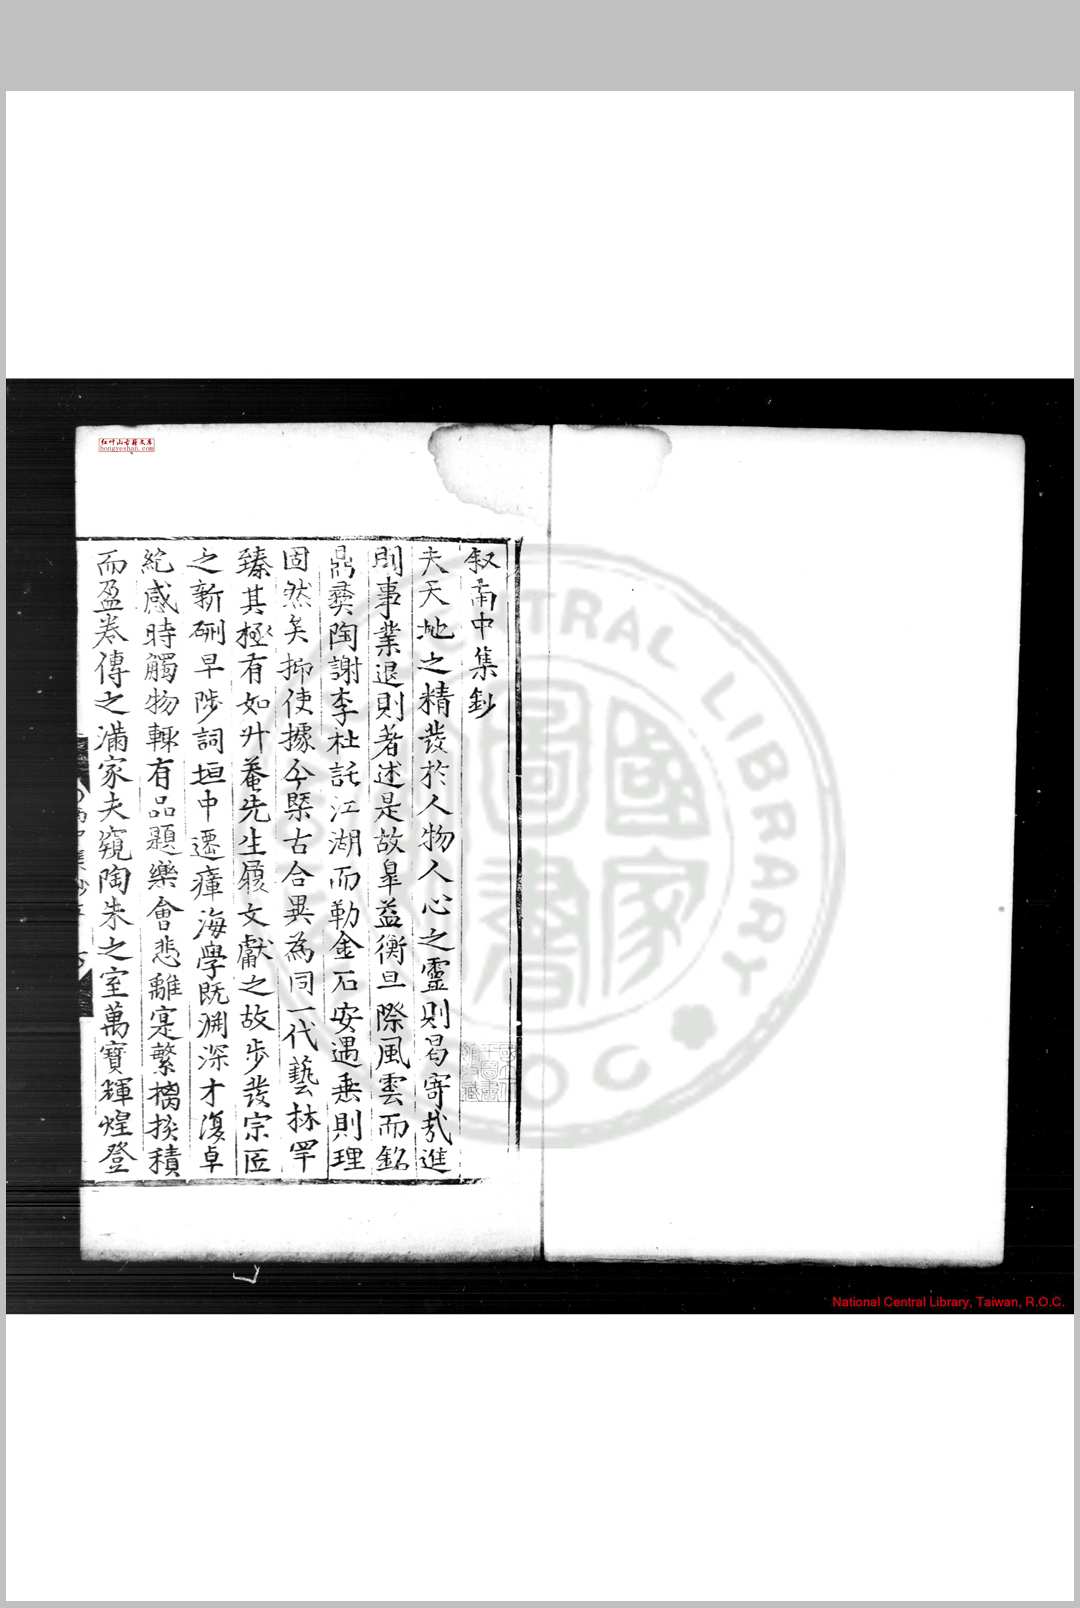 叙南中集鈔
夫天地之精發於人物人心之靈則曷寄哉進
則事業退則著述是故皐益衡旦際風雲而銘
鼎彝陶謝李杜託江湖而勒金石安遇乗則理
固然矣抑使據今槩古合異為同一代藝林罕
臻其極有如升菴先生履文獻之故步發宗匠
之新硎早陟詞垣中遷瘴海學既淵深才復卓
絶感時觸物輙有品題樂會悲離寔繁摛掞積
而盈卷傳之滿家夫窺陶朱之室萬寶輝煌登
红叶山古籍文库
hongyeshan.com
CENTRAL LIBRARY
國家圖書
R.O.C.
National Central Library, Taiwan, R.O.C.